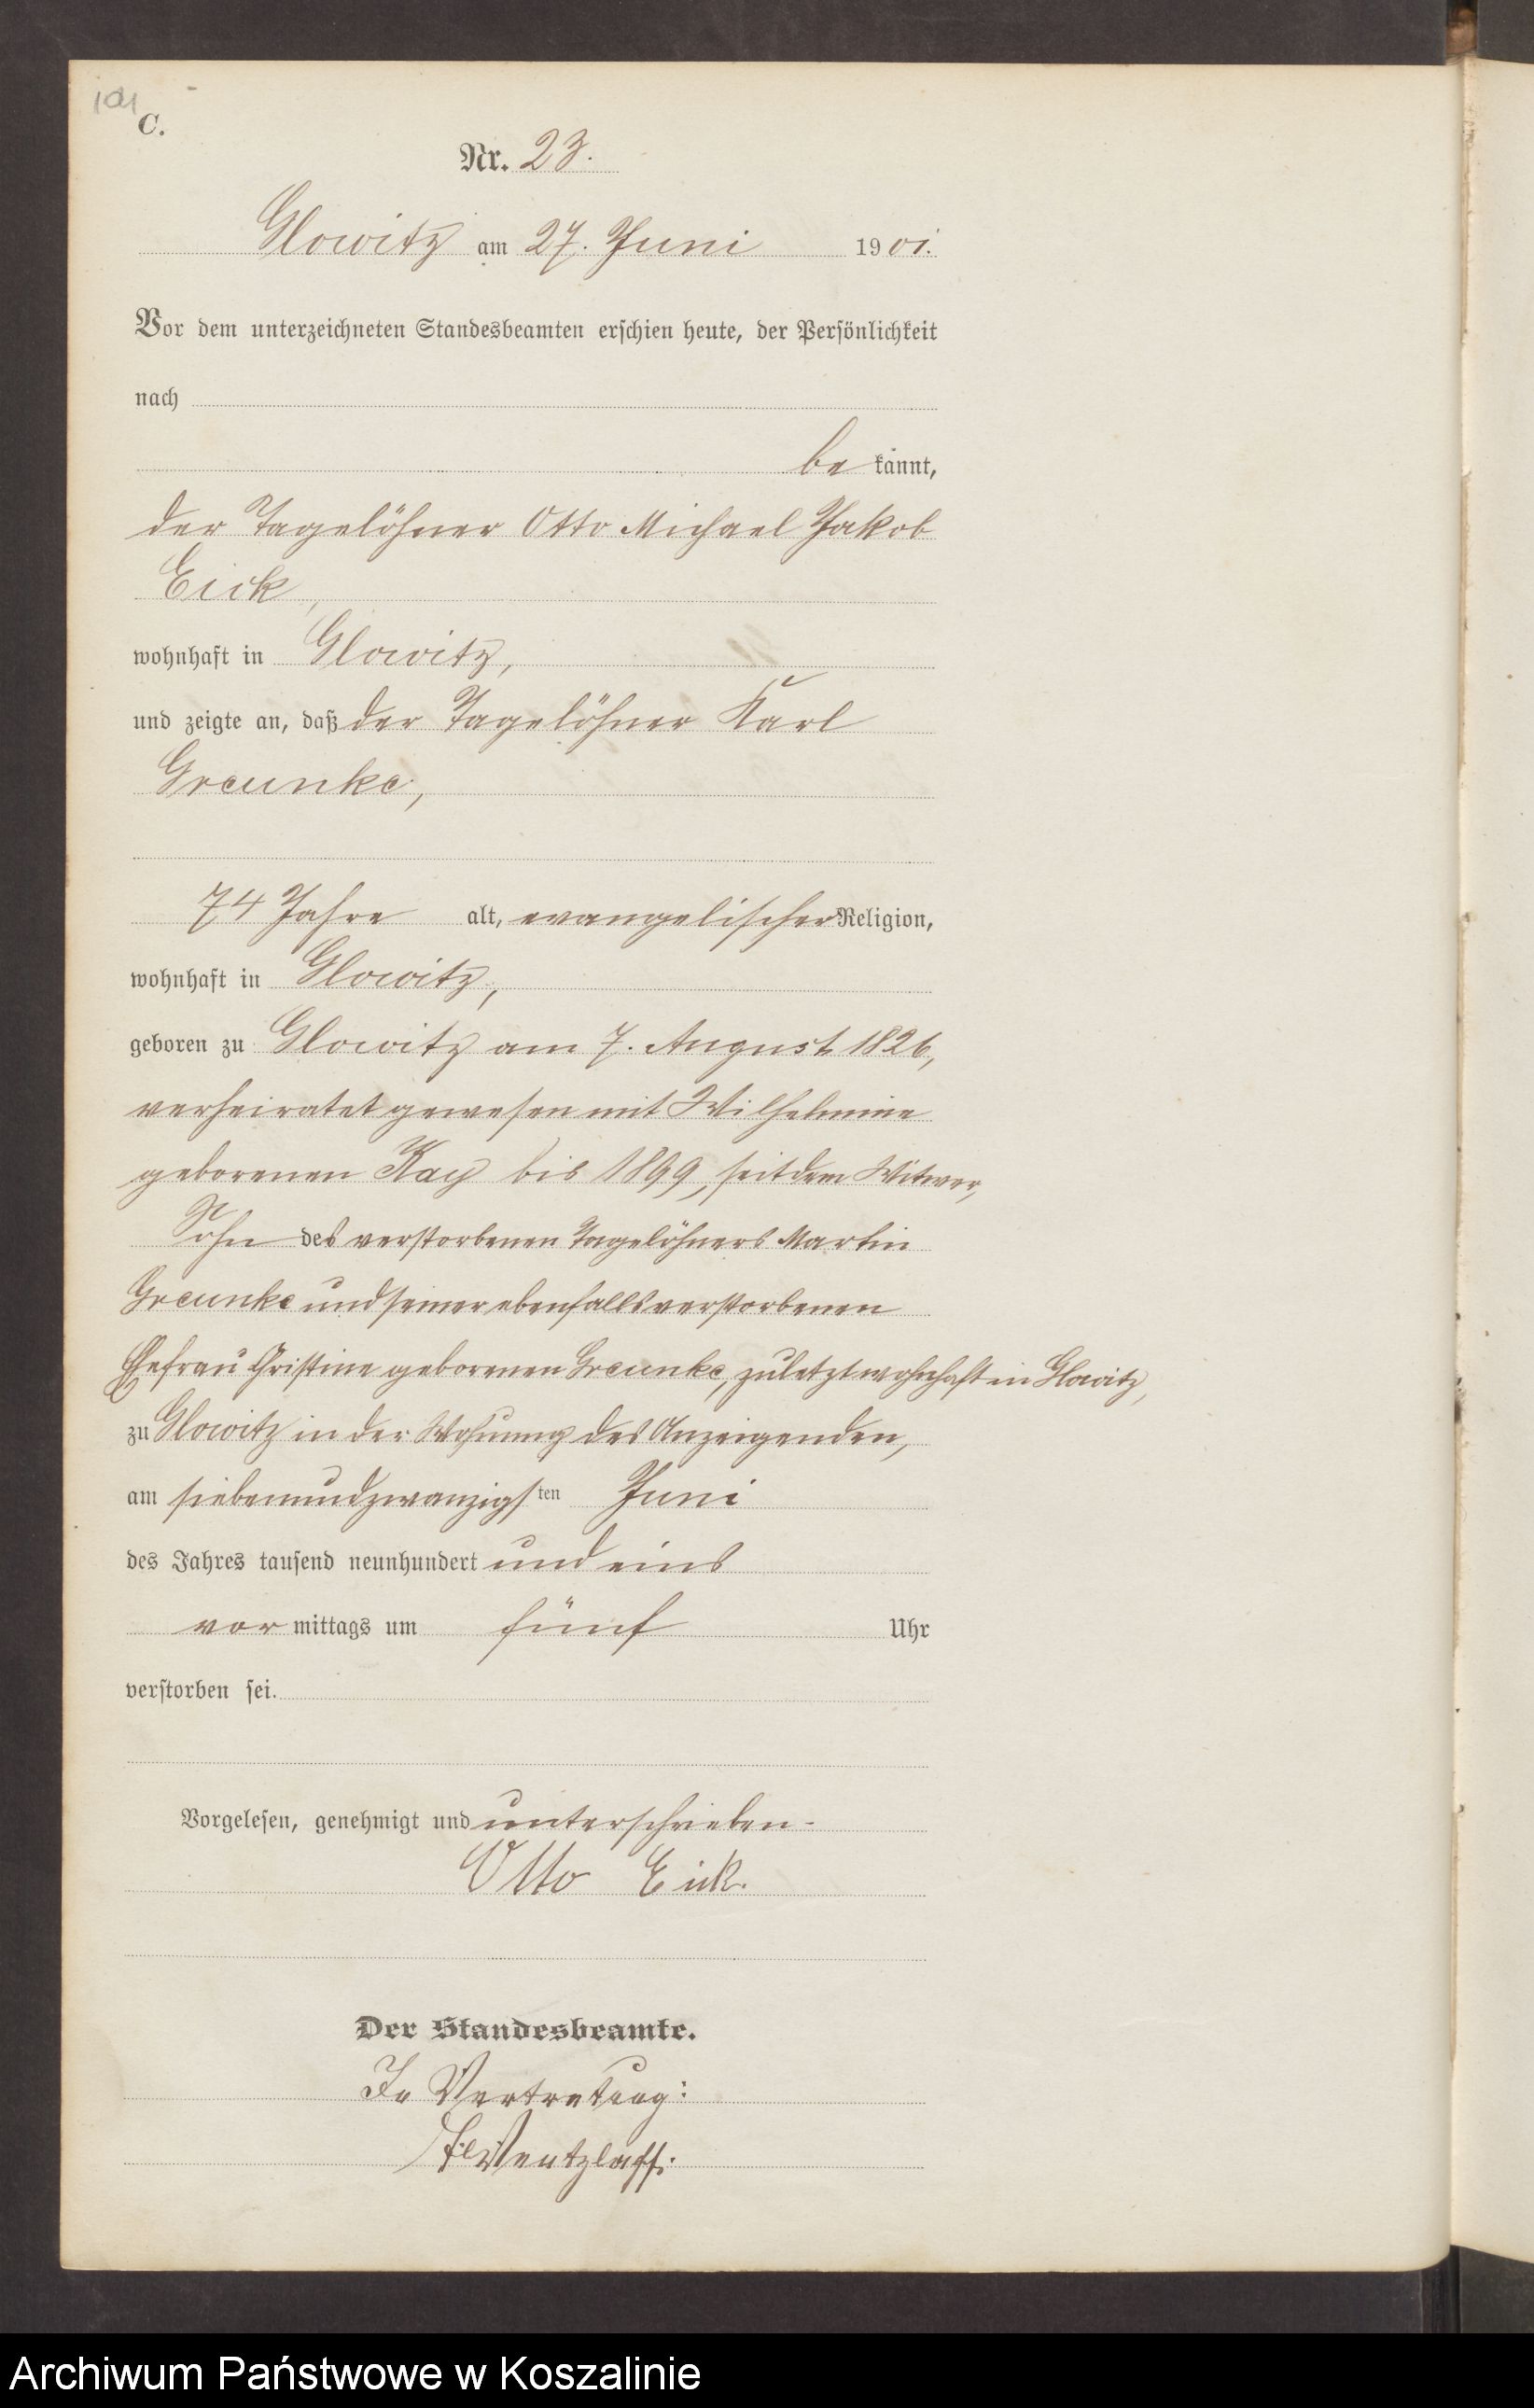 101
C.
Nr. 23.
Glowitz am 27. Juni 1901.
Vor dem unterzeichneten Standesbeamten erschien heute, der Persönlichkeit
nach
be kannt,
der Tagelöhner Otto Michael Jakob
Eick,
wohnhaft in Glowitz,
und zeigte an, daß der Tagelöhner Karl
Greunke,
74 Jahre alt, evangelischer Religion,
wohnhaft in Glowitz,
geboren zu Glowitz am 7. August 1826,
verheiratet gewesen mit Wilhelmine
geborenen Kay bis 1899, seitdem Witwer,
Sohn des verstorbenen Tagelöhners Martin
Greunke und seiner ebenfalls verstorbenen
Ehefrau Christine geborenen Greunke, zuletzt wohnhaft in Glowitz,
zu Glowitz in der Wohnung des Anzeigenden,
am siebenundzwanzigsten Juni
des Jahres tausend neunhundert und eins
vor mittags um fünf Uhr
verstorben sei.
Vorgelesen, genehmigt und unterschrieben.
Otto Eick.
Der Standesbeamte.
In Vertretung:
Wentzlaff.
Archiwum Państwowe w Koszalinie